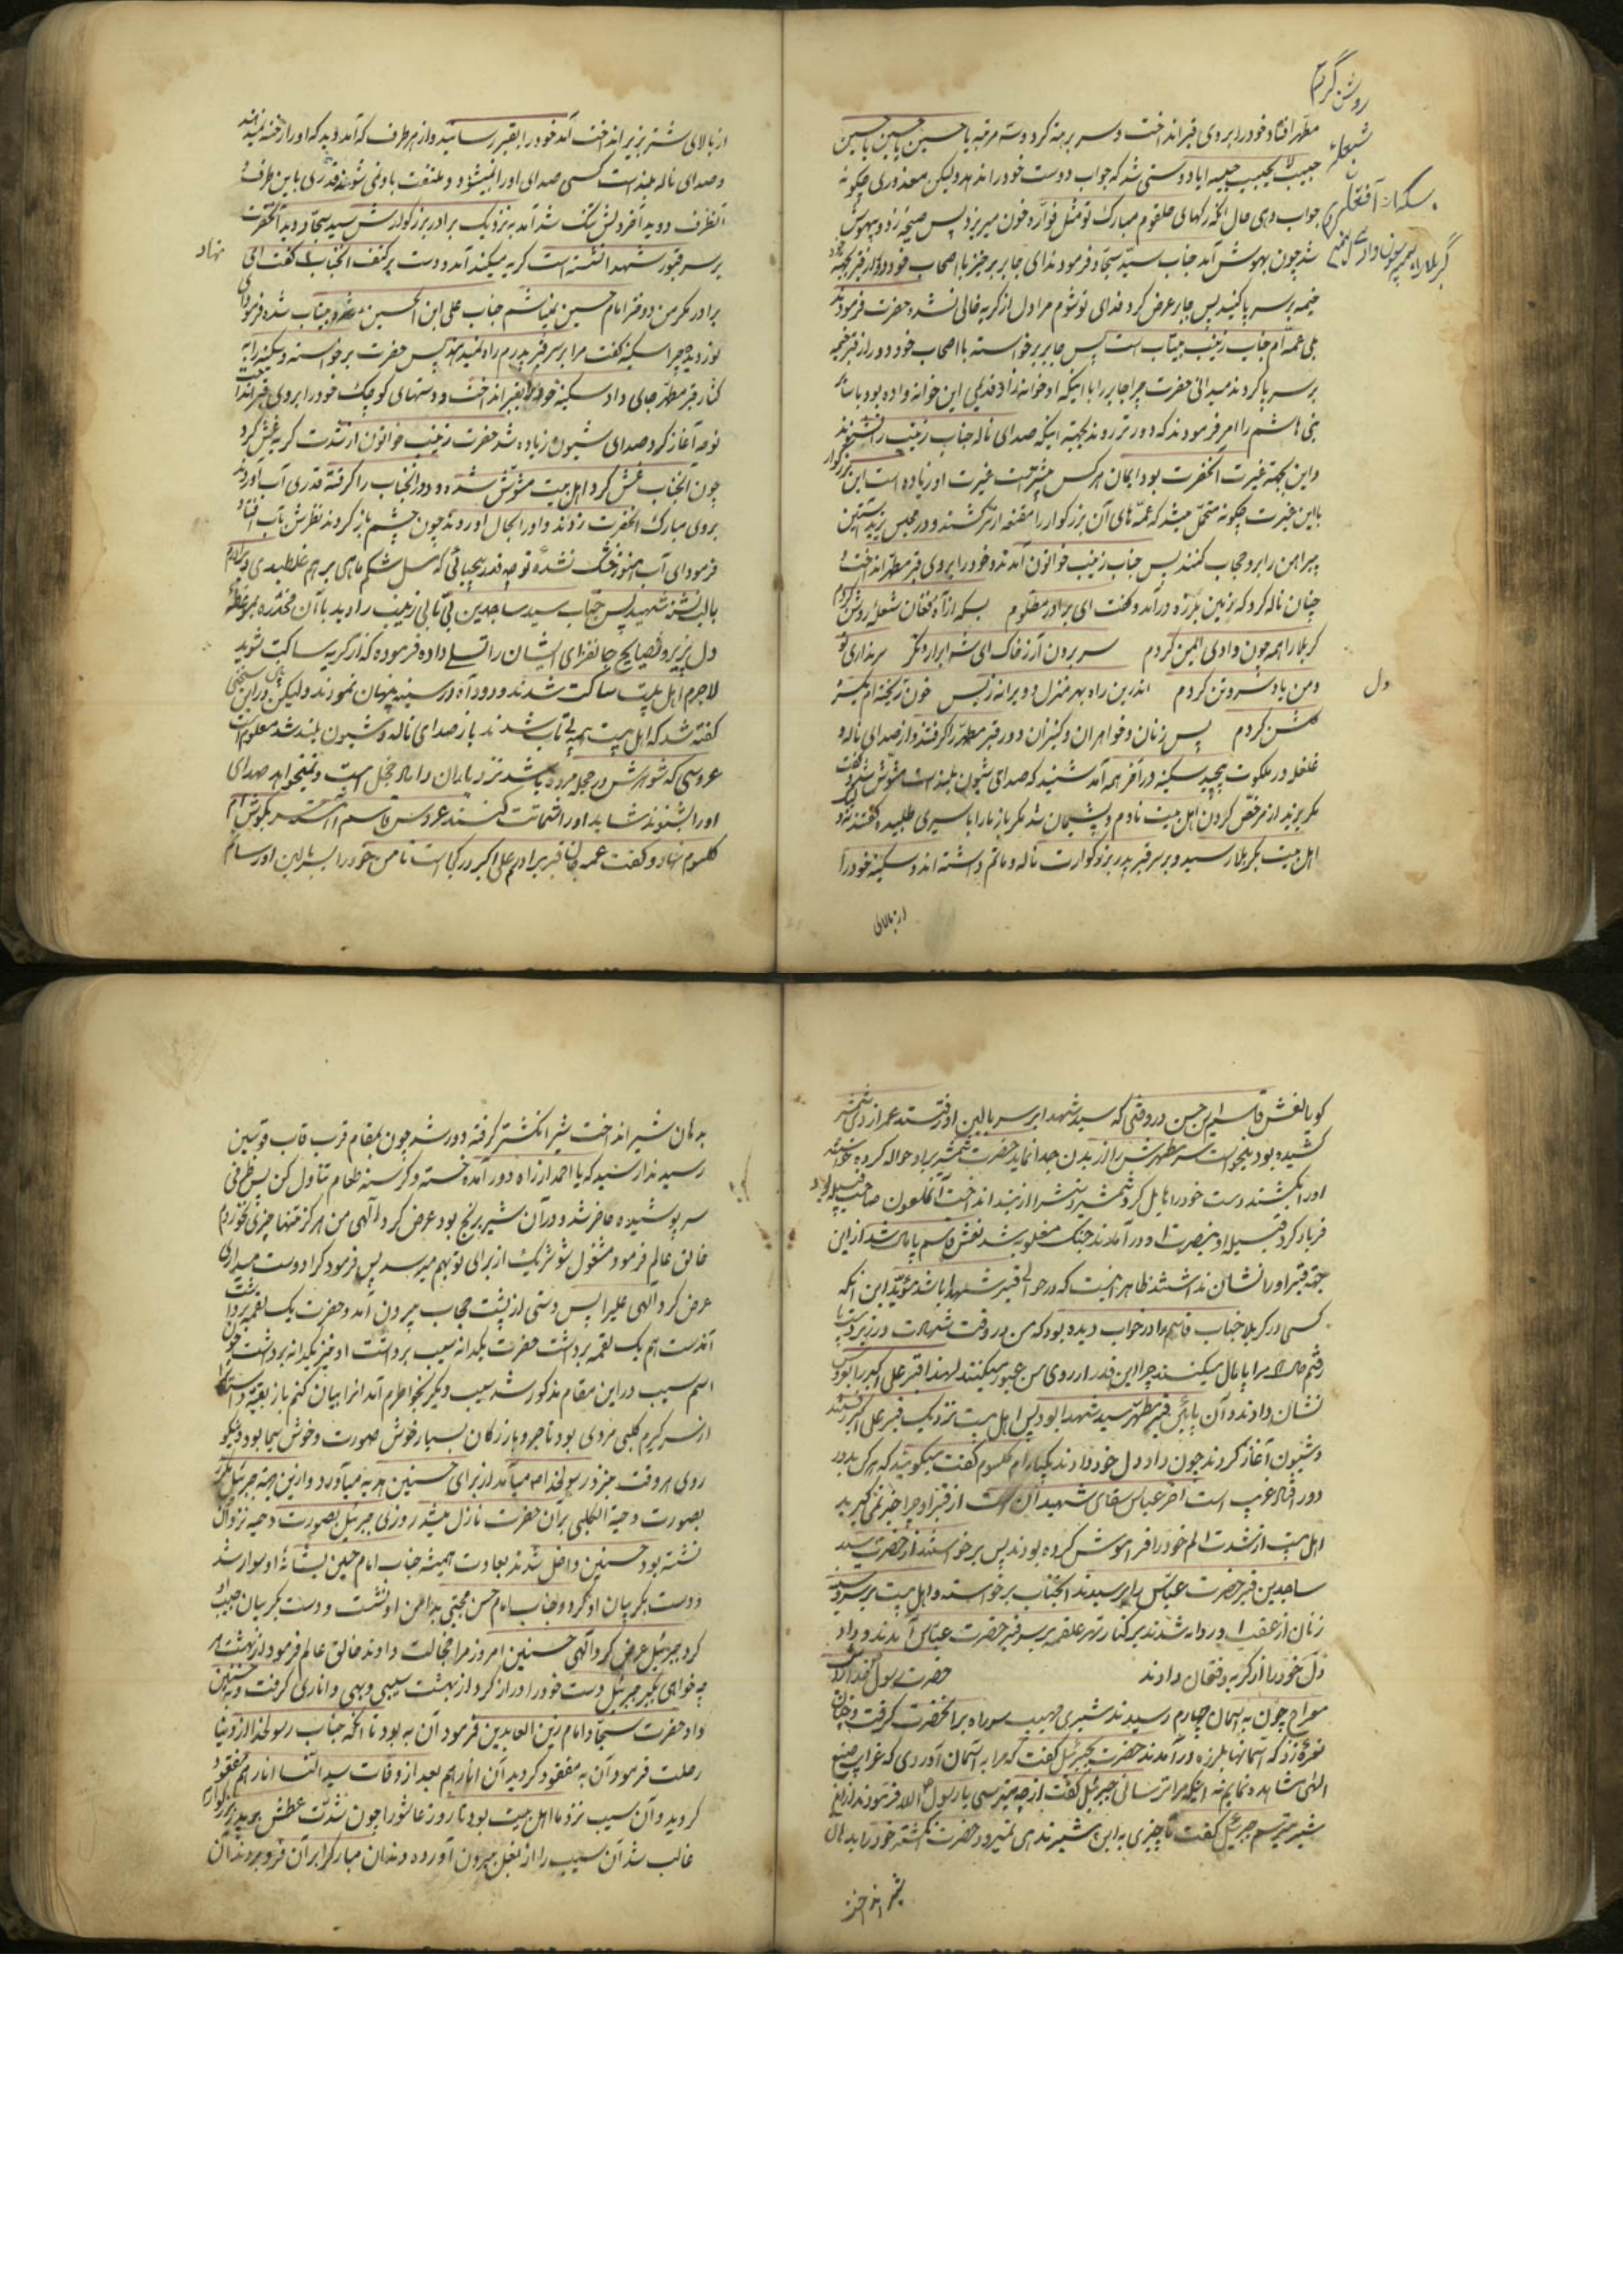 مطهر افتاد خود را بروی قبر انداخت و سر برهنه کرد و سه مرتبه یا حسین یا حسین یا حسین
حبیب لا یجیب حبیبه ایا دوستی شد که جواب دوست خود را ندهد ولیکن معذوری چگونه
جواب دهی حال آنکه رکهای حلقوم مبارک تو مثل فوّاره خون میریزد پس صیحهٔ زد و بیهوش
شد چون بهوش آمد جناب سیّد سجّاد فرمودند ای جابر برخیز با اصحاب خود دور از قبر بجهة
خیمه بر سر پا کنید پس جابر عرض کرد فدای تو شوم مرا دل از گریه خالی نشده حضرت فرمودند
بلی عمّه ام جناب زینب بیتاب است پس جابر برخواسته با اصحاب خود دور از قبر خیمه
بر سر پا کردند میدانی حضرت چرا جابر را با اینکه او خوانه زاد قدیمی این خوانه واده بود با سائر
بنی هاشم را امر فرمودند که دورتر روند بجهة اینکه صدای ناله جناب زینب را نشنوند
و این بجهة غیرت آنحضرت بود ایمان هر کس بیشتر است غیرت او زیاده است این بزرکوار
با این غیرت چگونه متحمّل میشد که عمّه های آن بزرکوار را مقنعه از سر کشند و در مجلس یزید آستین
پیراهن را برو حجاب کنند پس جناب زینب خواتون آمدند و خود را بروی قبر مطهر انداخت و
چنان ناله کرد که زمین بلرزه درآمد و کفت ای برادر مظلوم بسکه از آه و فغان شعله روشن کردم
کربلا را همه چون وادی ایمن کردم سر برون آر ز خاک ای شه ابرار و نکر
کلشن کردم پس زنان و خواهران و کنیزان دور قبر مطهّر را کرفتند و از صدای ناله و
غلغله در ملکوت پیچید سکینه در آخر همه آمد شنید که صدای شیون بلند است مشوّش شد و کفت
مکر یزید از مرخّص کردن اهل بیت نادم و پشیمان شد مکر باز ما را باسیری طلبیده کفتند نه
اهل بیت بکربلا رسید و بر سر قبر پدر بزرکوارت ناله و ماتم داشته اند و سکینه خود را
از بالای
روشن کردم
شعلهٔ
دل
از بالای شتر بزیر انداخت آمد خود را بقبر رسانید و از هر طرف که آمد دید که او را رخنه نمیدهند
و صدای ناله بلند است کسی صدای او را نمیشنود و ملتفت باو نمی شوند قدری باین طرف و
آنطرف دوید آخر دلش تنک شد آمد به نزدیک برادر بزرکوارش سید سجّاد دید آنحضرت
بر سر قبور شهدا نشسته است کریه میکند آمد و دست بر کتف آنجناب نهاد کفت ای
برادر مکر من دختر امام حسین نمیباشم جناب علی ابن الحسین بیتاب شد و فرمود ای
نور دیده چرا سکینه کفت مرا بر سر قبر پدرم راه نمیدهند پس حضرت برخواسته و سکینه را به
کنار قبر مطهر جای داد سکینه خود را بقبر انداخت و دستهای کوچک خود را بروی قبر انداخت
نوحه آغاز کرد صدای شیون زیاده شد حضرت زینب خواتون از شدت کریه غش کرد
چون آنجناب غش کرد اهل بیت مشوّش شده و دور آنجناب را کرفته قدری آب آوردند
بروی مبارک آنحضرت زدند و او را بحال آوردند چون چشم باز کردند نظرش بآب افتاد
فرمود ای آب هنوز خشک نشدهٔ تو چه قدر بیحیائی که مثل شکم ماهی بر هم غلطیدی و برادرم
با لب تشنه شهید پس جناب سید ساجدین بی تابی زینب را دید با آن مخدّره بموعظهٔ
دل پزیر و نصایح جانفزای ایشان را تسلی داده فرموده که از کریه ساکت شوید
لاجرم اهل بیت ساکت شدند و دود آه در سینه پنهان نمودند ولیکن در این
کفته شد که اهل بیت همه بی تاب شدند باز صدای ناله و شیون بلند شد معلوم است
عروسی که شوهرش در حجله مرده باشد نزد یاران داماد خجل است و نمیخواهد صدای
او را بشنوند شاید او را شماتت کنند عروس قاسم آمد سر بکوش ام
کلثوم نهاد و کفت عمه جان قبر برادرم علی اکبر در کجاست تا من خود را بسر بالین او رسانم
کویا نعش قاسم ابن حسن در وقتی که سید شهدا بر سر بالین او رفتند عمر ازدی شمشیر
کشیده بود میخواست سر مطهرش را از بدن جدا نماید حضرت شمشیر براو حواله کرده خواسته
او را بکشند دست خود را حایل کرد شمشیر دستش را از بند انداخت آنملعون صاحب قبیله بود
فریاد کرد قبیله او بنصرت او درآمدند جنک مغلوبه شد نعش قاسم پامال شد از این
جهة قبر او را نشان نداشتند ظاهر اینست که در حوالی قبر شهدا باشد مؤیّد این انکه
کسی در کربلا جناب قاسم را در خواب دیده بود که من در وقت شهادت در زیر دست و پا
رفتم حالا مرا پامال میکنند چرا این قدر از روی من عبور میکنند لهذا قبر علی اکبر را بعروس
نشان دادند و آن پائین قبر مطهر سید شهدا بود پس اهل بیت نزدیک قبر علی اکبر نشستند
و شیون آغاز کردند چون داد دل خود دادند یکبار ام کلثوم کفت میکوئید که هر کس بدور
دور افتاد غریب است آخر عباس سقای شهیدان است از قبر او چرا خبر نمی کیرید
اهل بیت از شدت الم خود را فراموش کرده بودند پس برخواستند از حضرت سید
ساجدین قبر حضرت عباس را پرسیدند آنجناب برخواسته و اهل بیت بر سر و سینه
زنان از عقب او روانه شدند بر کنار نهر علقمه بر سر قبر حضرت عباس آمدند و داد
دل خود را از کریه و فغان دادند حضرت رسول خدا در شب
معراج چون به آسمان چهارم رسیدند شیری مهیب سر راه بر آنحضرت کرفت و چنان
نعرهٔ زد که آسمانها بلرزه درآمدند حضرت بجبرئیل کفت که مرا به آسمان آوردی که غرایب صنع
الهی مشاهده نمایم نه اینکه مرا ترسانی جبرئیل کفت از چه میترسی یا رسول الله فرمودند از این
شیر میترسم جبرئیل کفت تا چیزی به این شیر ندهی نمیرود حضرت انکشتر خود را بدهان
شیر انداخت
بدهان شیر انداخت شیر انکشتر کرفته دور شد چون بمقام قرب قاب قوسین
رسید ندا رسید که یا احمد از راه دور آمده خسته و کرسنه طعام تناول کن پس ظرفی
سر پوشیده حاضر شد و در آن شیر برنج بود عرض کرد الهی من هرکز تنها چیزی نخوردم
خالق عالم فرمود مشغول شو شریک از برای تو بهم میرسد پس فرمود کرا دوست میداری
عرض کرد الهی علی را پس دستی از پشت حجاب بیرون آمد و حضرت یک لقمه برداشت
آندست هم یک لقمه برداشت حضرت یکدانه سیب برداشت او نیز یکدانه برداشت چون
اسم سیب در این مقام مذکور شد سیب دیکر بخواطرم آمد آنرا بیان کنم باز بقیه داستان را
از سر کیرم کلبی مردی بود تاجر و بازرکان بسیار خوش صورت و خوش سیما بود و نیکو
روی هر وقت نزد رسولخدا میآمد از برای حسنین هدیه میآورد و از این جهة جبرئیل
بصورت دحیة الکلبی بر آن حضرت نازل میشد روزی جبرئیل بصورت دحیه نزد آن
نشسته بود حسنین داخل شدند بعادت همیشه جناب امام حسین بشانهٔ او سوار شد
و دست بکریبان او کرد و جناب امام حسن مجتبی بدامن او نشست و دست بکریبان جیب او
کرد جبرئیل عرض کرد الهی حسنین امروز مرا خجالت دادند خالق عالم فرمود از بهشت هر
چه خواهی بکیر جبرئیل دست خود را دراز کرد از بهشت سیبی و بهی و اناری کرفت و بحسنین
داد حضرت سجّاد امام زین العابدین فرمود آن به بود تا آنکه جناب رسولخدا از دنیا
رحلت فرمود آن به مفقود کردید آن انار هم بعد از وفات سیدة النسا انار هم مفقود
کردید و آن سیب نزد ما اهل بیت بود تا روز عاشورا چون شدّت عطش بر پدر بزرکوارم
غالب شد آن سیب را از بغل بیرون آورده دندان مبارک را بر آن فرو بردند آن